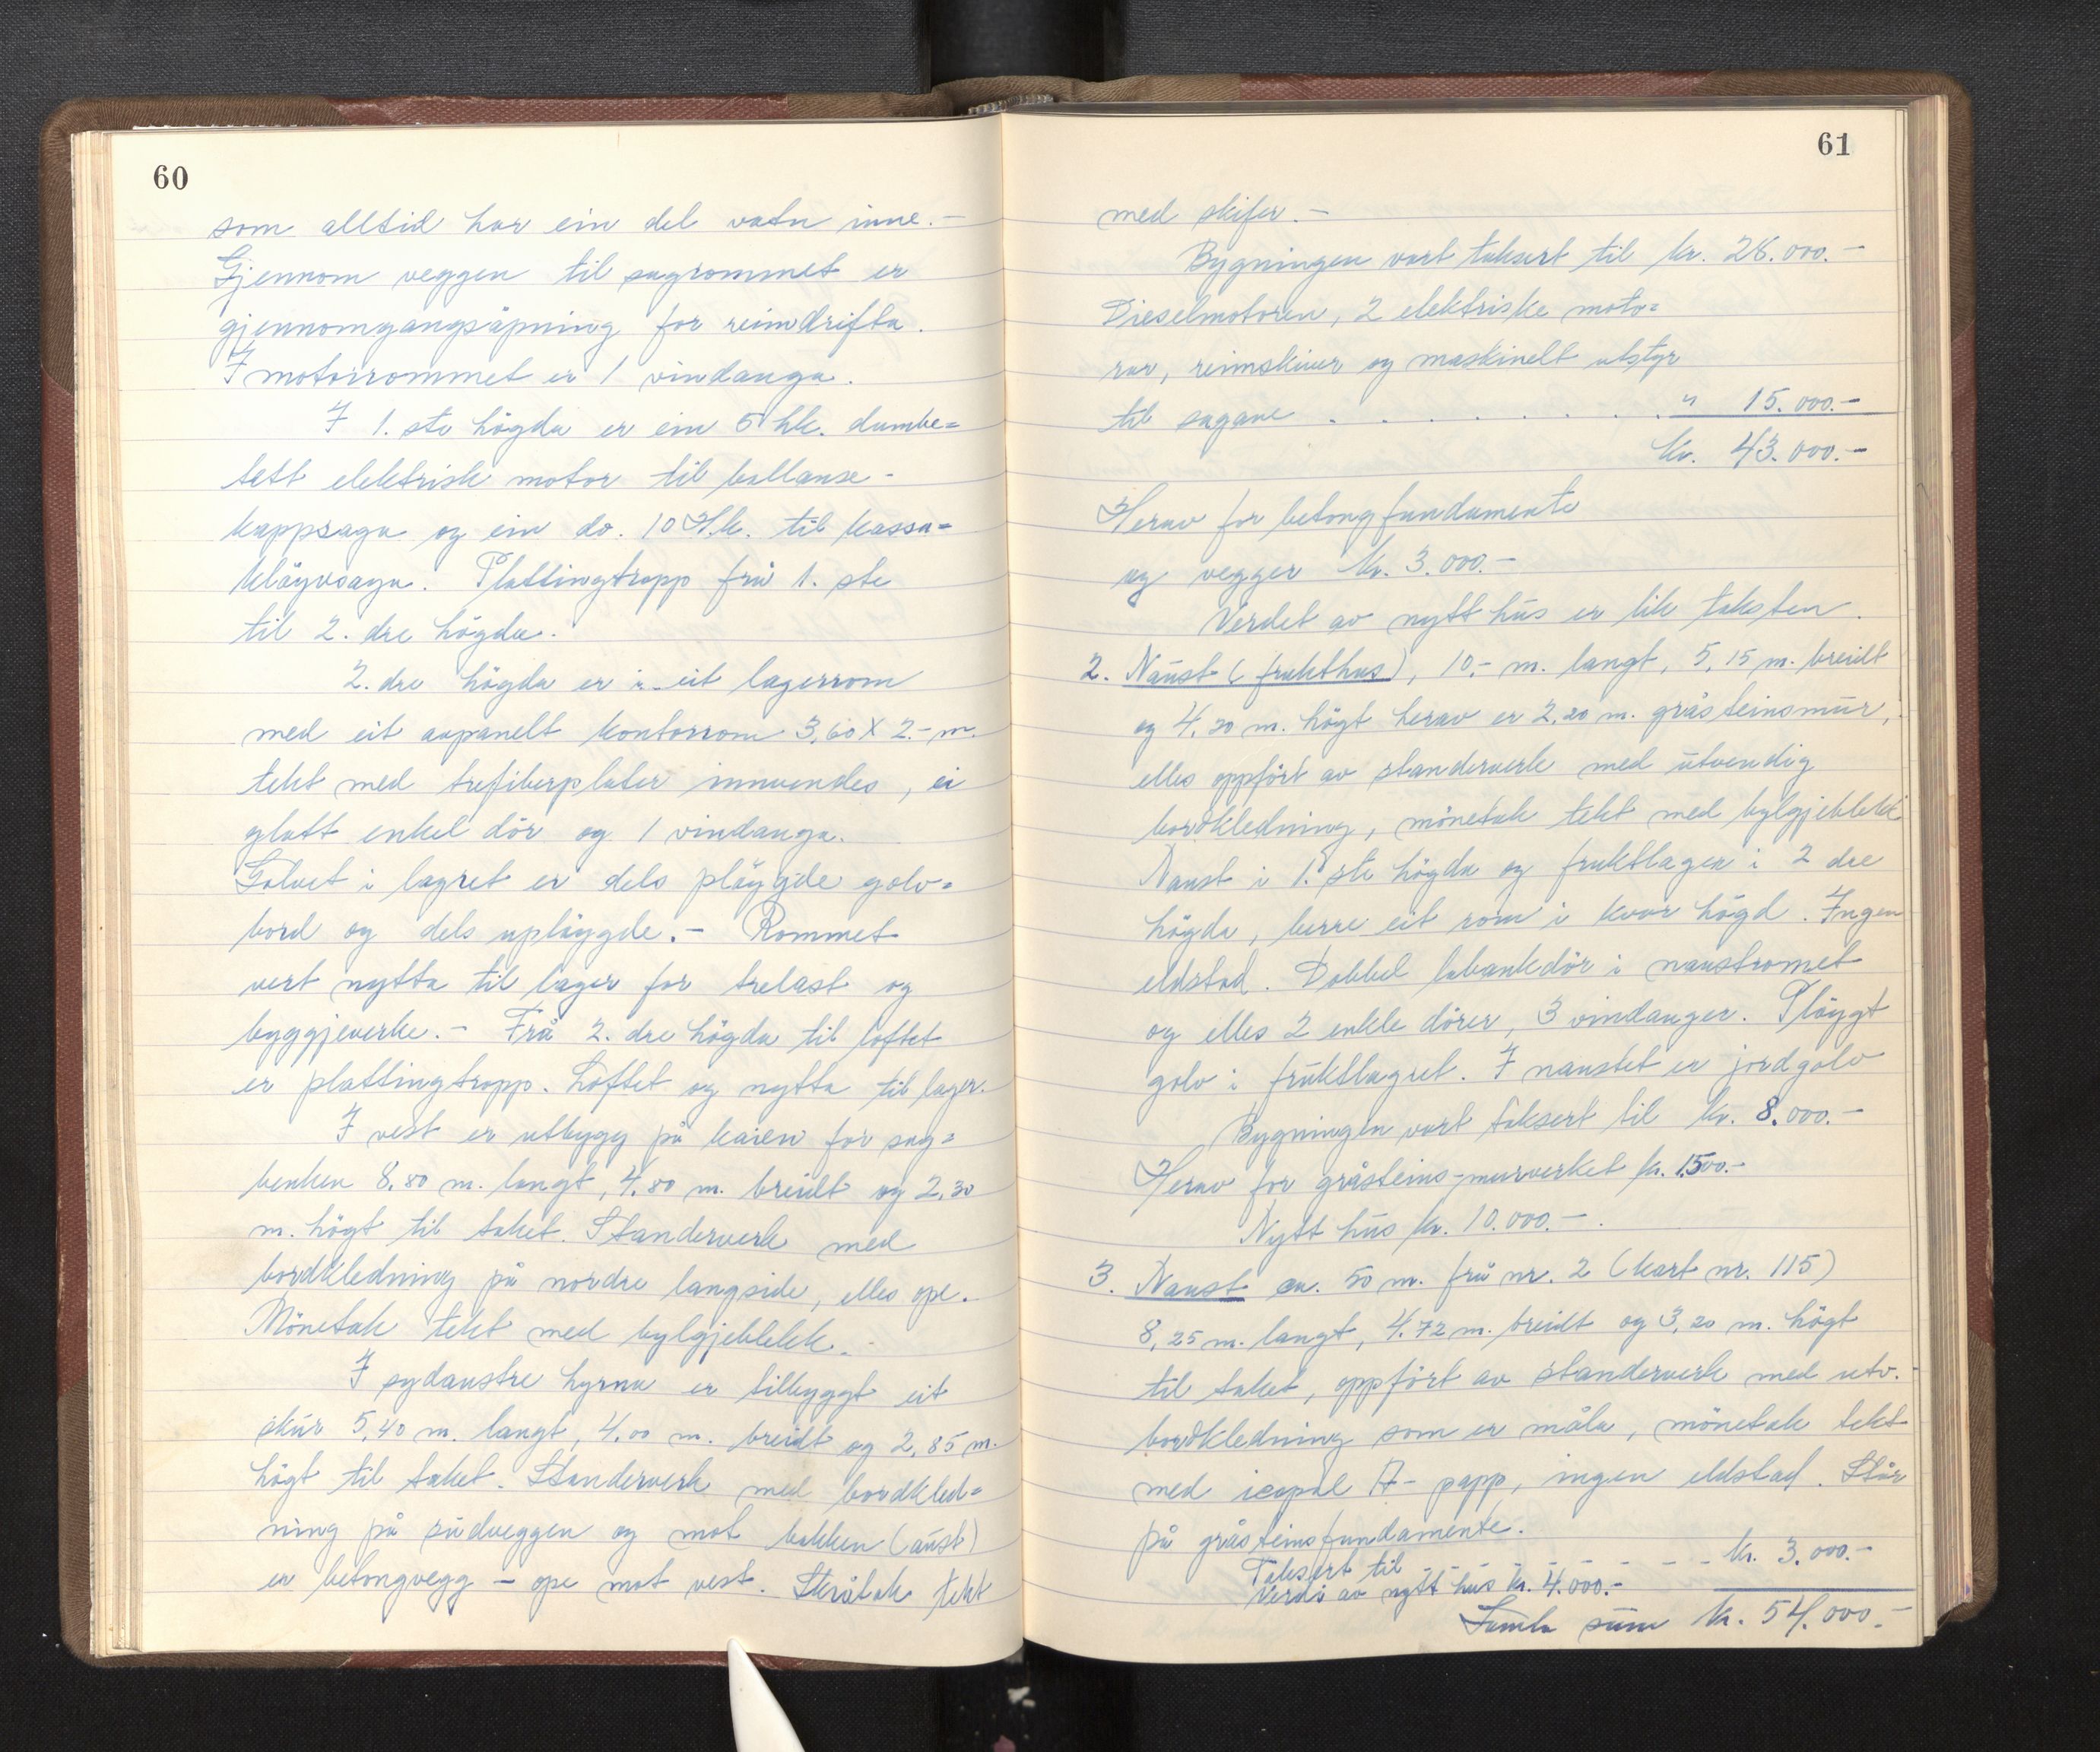 60
som alltid har ein del vatn inne.-
Gjennom veggen til sagrommet er
gjennomgangsåpning for reimdrifta.
I motorrommet er 1 vindauga.
I 1. ste högda er ein 5 hk. dambe=
tett elektrisk motor til ballanse-
kappsaga og ein do. 10 H.k. til kassa=
kløyvsaga. Plattingtropp frå 1. ste
til 2. dre högda.
2. dre högda er i eit lagerrom
med eit avpanelt kontorrom 3,60 X 2.- m.
tekt med trefiberplater innvendes, ei
glatt enkel dör og 1 vindauga.
Golvet i lagret er dels plöygde golv=
bord og dels uplöygde.- Rommet
vert nytta til lager for trelast og
byggjeverke.- Frå 2. dre högda til loftet
er plattingtropp. Loftet og nytta til lager.
I vest er utbygg på kaien for sag=
benken 8,80 m. langt, 4,80 m. breidt og 2,30
m. högt til taket. Standerverk med
bordkledning på nordre langside, elles ope.
Mönetak tekt med bylgjeblekk.
I sydaustre hyrna er tilbyggt eit
skur 5,40 m. langt, 4,00 m. breidt og 2,85 m.
högt til taket. Standerverk med bordkled=
ning på sudveggen og mot bakken (aust)
er betongvegg - ope mot vest. Skråtak tekt
61
med skifer.-
Bygningen vart taksert til kr. 28.000.-
Dieselmotoren, 2 elektriske moto=
rar, reimskiver og maskinelt utstyr
til sagane . . . . . . . . . " 15.000.-
kr. 43.000.-
Herav for betongfundamente
og vegger kr. 3.000.-
Verdet av nytt hus er lik taksten.
2. Naust (frukthus), 10.- m. langt, 5,15 m. breidt
og 4,20 m. högt herav er 2,20 m. gråsteinsmur,
elles oppfört av standerverk med utvendig
bordkledning, mönetak tekt med bylgjeblekk
Naust i 1. ste högda og fruktlager i 2 dre
högda, berre eit rom i kvar högd. Ingen
eldstad. Dobbel labankdör i naustromet
og elles 2 enkle dörer, 3 vindauger. Plöygt
golv i fruktlagret. I naustet er jordgolv
Bygningen vart taksert til kr. 8.000.-
Herav for gråsteins-murverket kr. 1500.-
Nytt hus kr. 10.000.-.
3. Naust ca. 50 m. frå nr. 2 (kart nr. 115)
8,25 m. langt, 4.72 m. breidt og 3,20 m. högt
til taket, oppfört av standerverk med utv.
bordkledning som er måla, mönetak tekt
med icopal A- papp, ingen eldstad. Står
på gråsteinsfundamente.
Taksert til - - - - - - - - kr. 3.000.-
Verdi av nytt hus kr. 4.000.-
Samla sum kr. 54.000.-